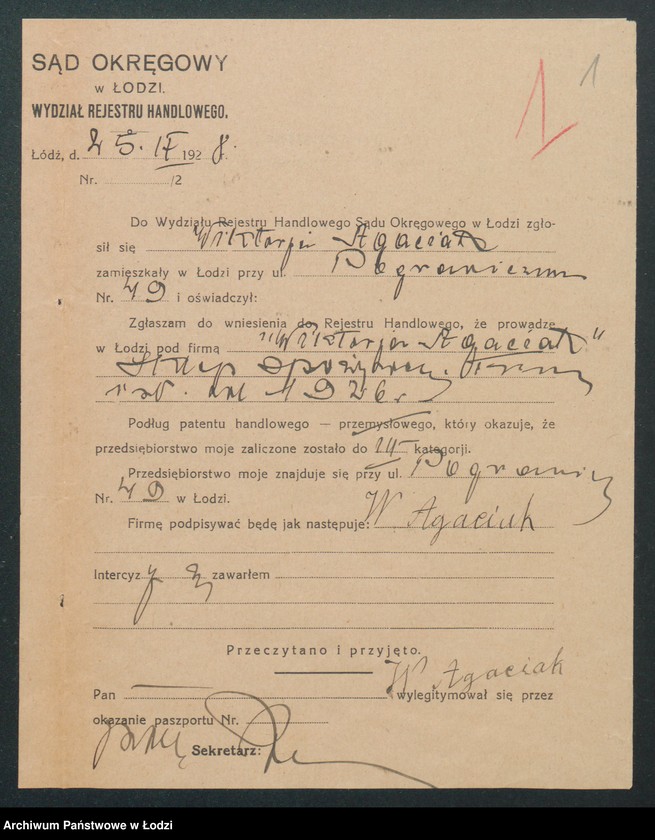 SĄD OKRĘGOWY
w ŁODZI.
WYDZIAŁ REJESTRU HANDLOWEGO.
1 1
Łódź, d. 25. IX 1928 r.
Nr. /2
Do Wydziału Rejestru Handlowego Sądu Okręgowego w Łodzi zgło-
sił się Wiktorja Agaciak
zamieszkały w Łodzi przy ul. Pograniczna
Nr. 49 i oświadczył:
Zgłaszam do wniesienia do Rejestru Handlowego, że prowadzę
w Łodzi pod firmą "Wiktorja Agaciak"
Sklep spożywczy.
od 1926 r
Podług patentu handlowego — przemysłowego, który okazuje, że
przedsiębiorstwo moje zaliczone zostało do III kategorji.
Przedsiębiorstwo moje znajduje się przy ul. Pograniczn
Nr. 49 w Łodzi.
Firmę podpisywać będę jak następuje: W Agaciak
Intercyzy zawarłem
Przeczytano i przyjęto.
W Agaciak
Pan wylegitymował się przez
okazanie paszportu Nr.
Sekretarz:
Archiwum Państwowe w Łodzi